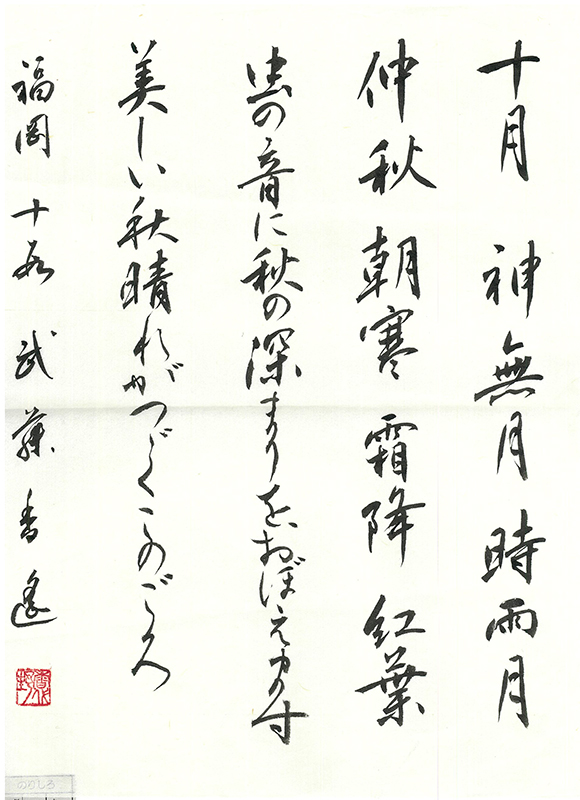 十月 神無月 時雨月
仲秋 朝寒 霜降 紅葉
虫の音に秋の深まりをおぼえ
美しい秋晴れがつづくこのごろ
福岡 武藤 香
のりしろ